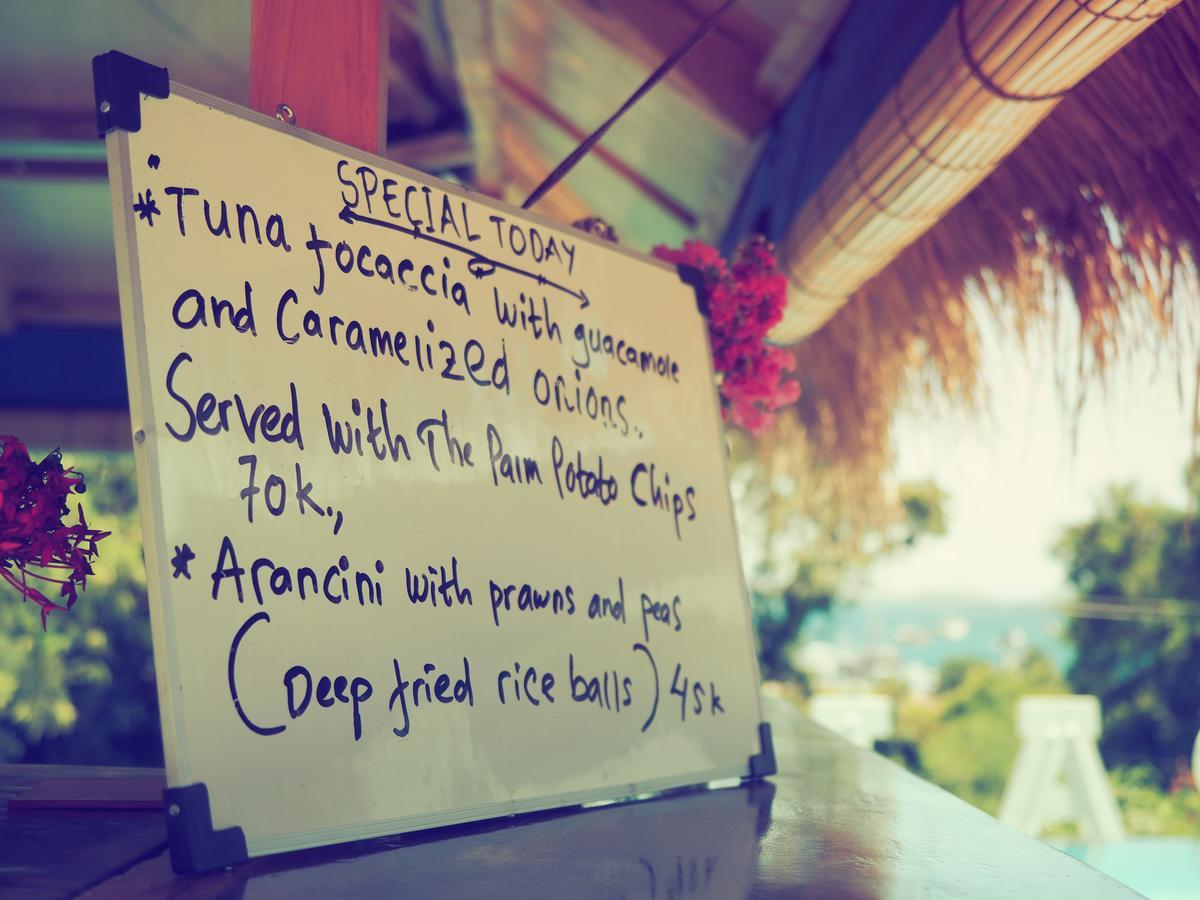 SPECIAL TODAY
*Tuna focaccia with guacamole
and Caramelized onions.,
Served with The Palm Potato Chips
70k.,
* Arancini with prawns and peas
(Deep fried rice balls) 45k